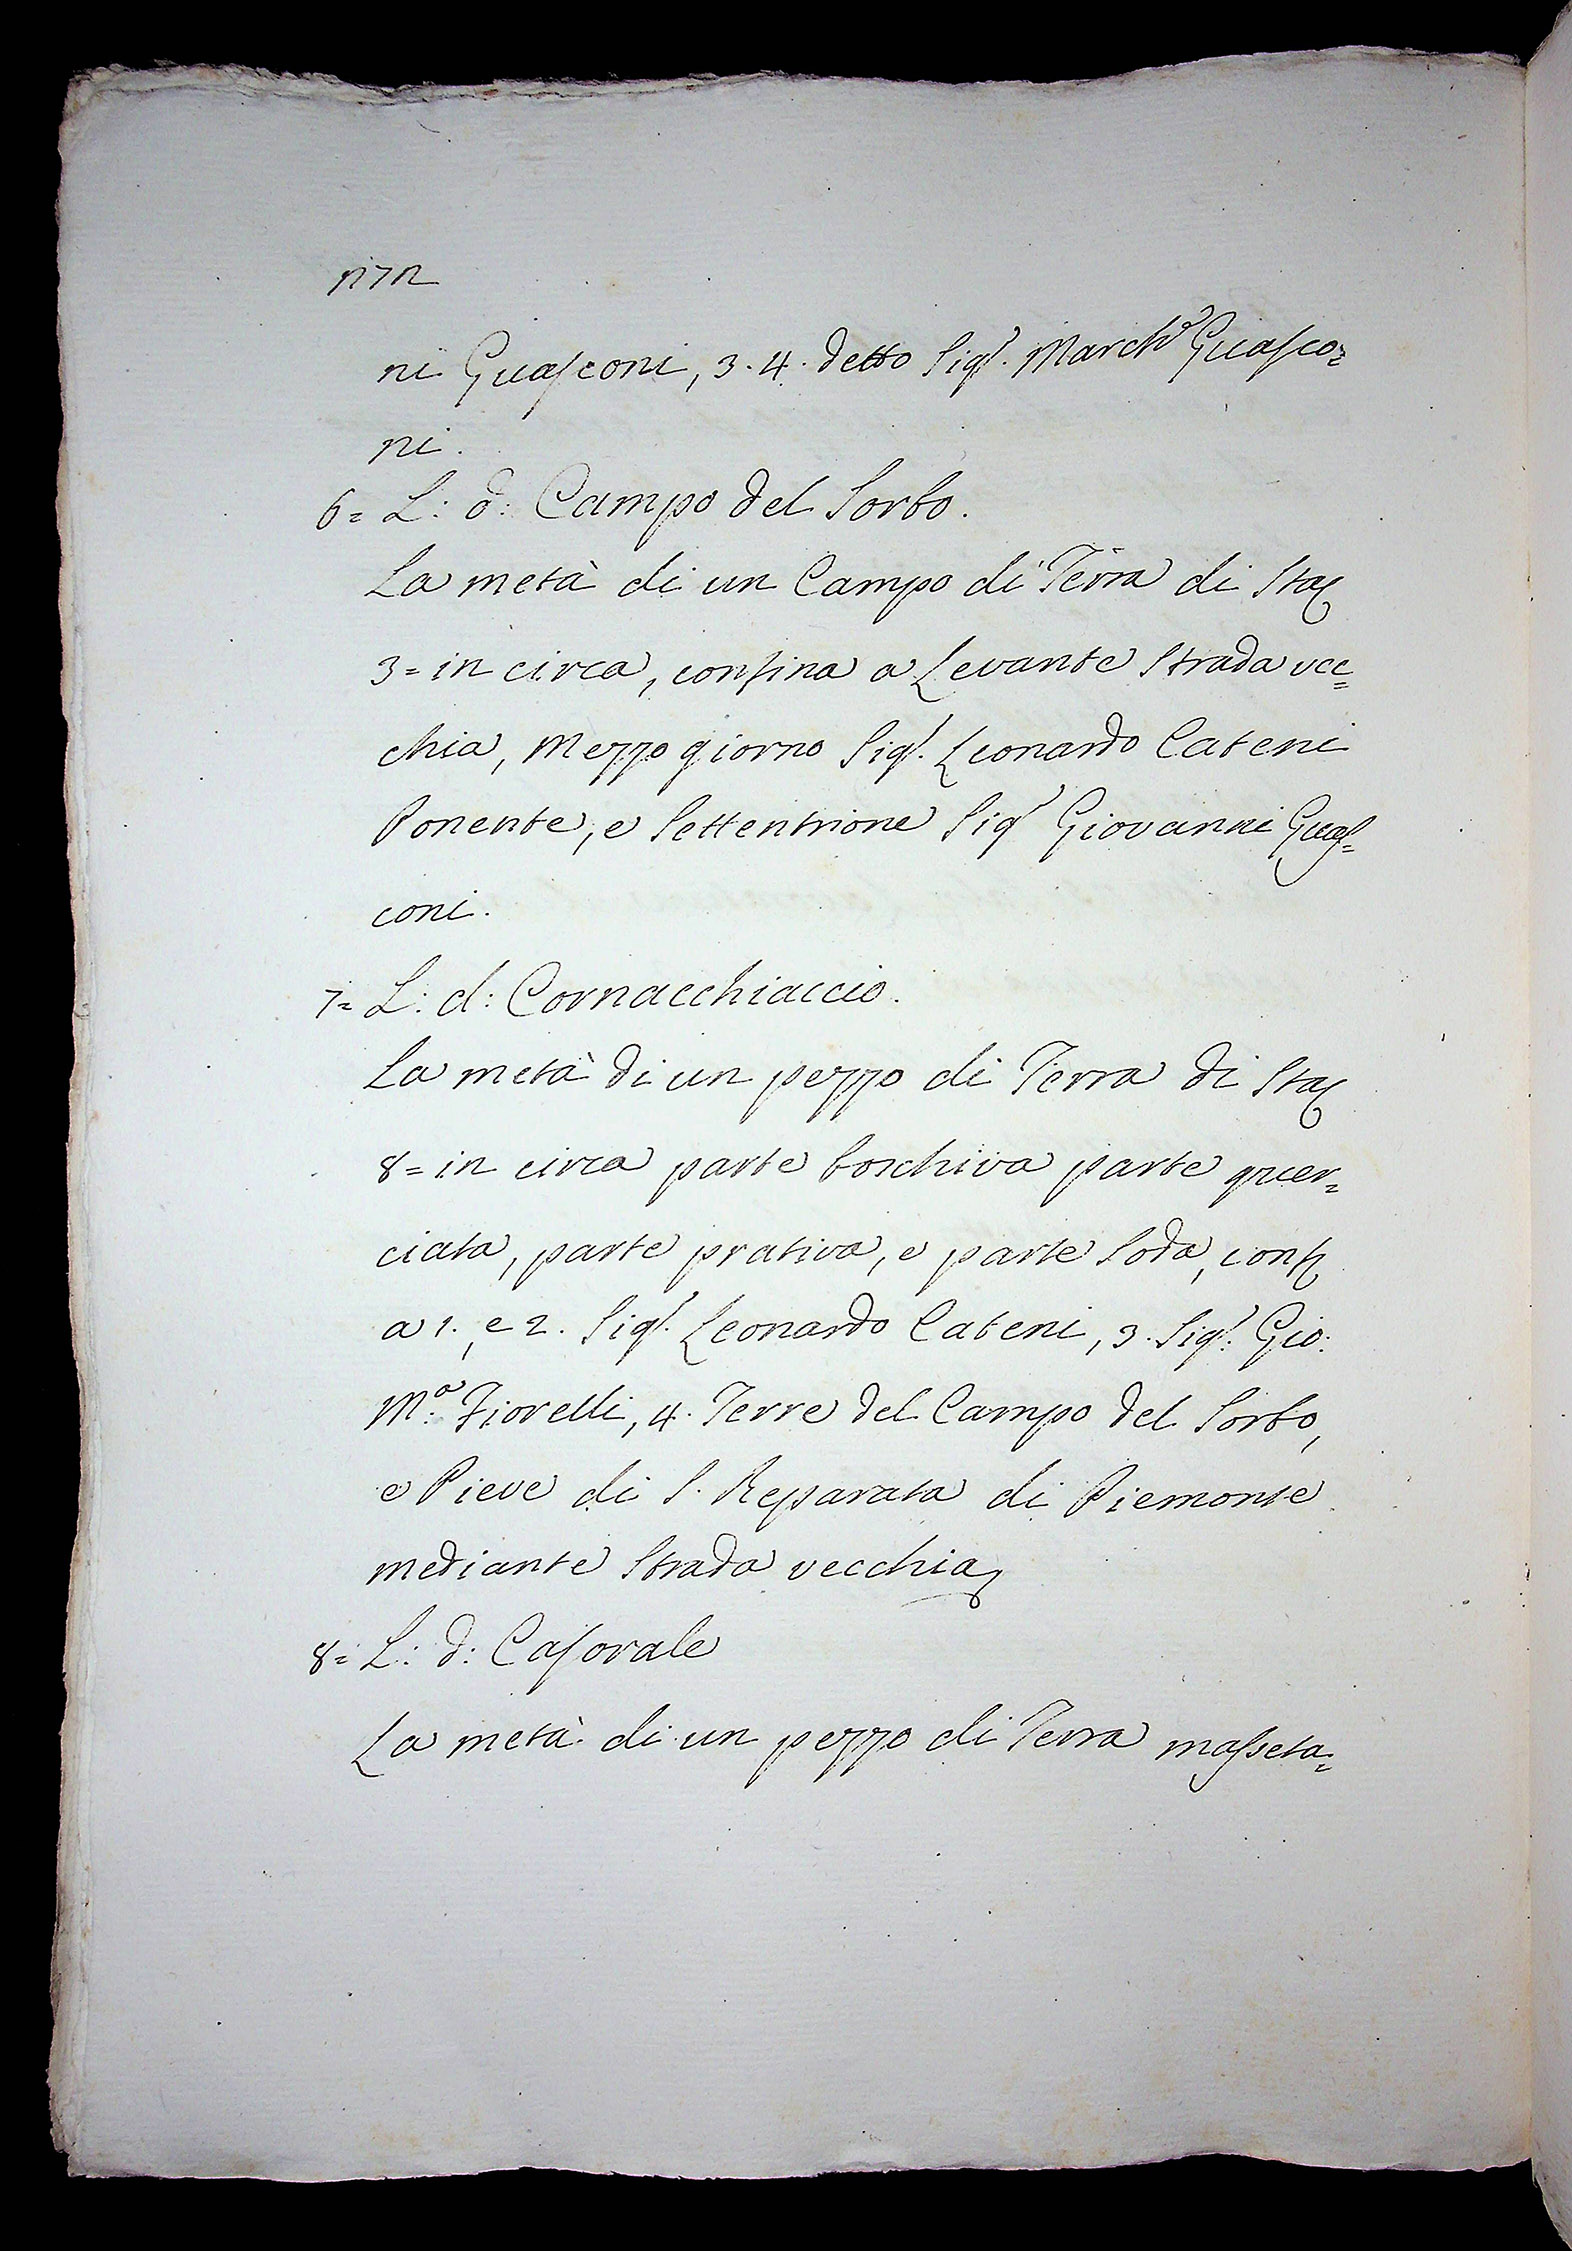 ni Guasconi, 3. 4. detto Sigr. Marche Guasco=
ni.
6= L: d: Campo del Sorbo.
La metà di un Campo di Terra di Sta
3= in circa, confina a Levante Strada vec=
chia, Mezzo giorno Sigr. Leonardo Cateni
Ponente, e Settentrione Sigr Giovanni Guas=
coni.
7= L: d: Cornacchiaccio.
La metà di un pezzo di Terra di Sta
8= in circa parte boschiva parte quer=
ciata, parte prativa, e parte Soda, conf
a 1., e 2. Sigr. Leonardo Cateni, 3. Sigr. Gio:
Ma: Fiorelli, 4. Terre del Campo del Sorbo,
e Pieve di S. Reparata di Piemonte
mediante Strada vecchia
8= L: d: Casovale
La metà di un pezzo di Terra masseta=